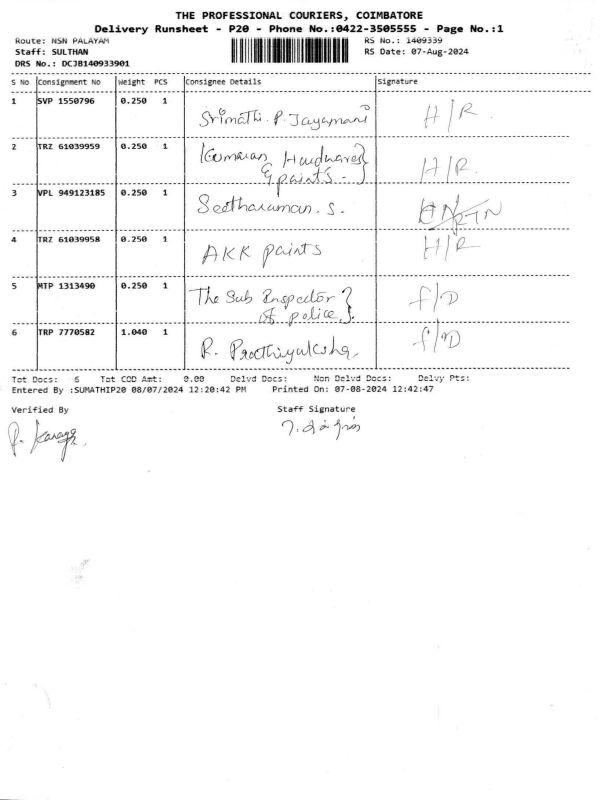 THE PROFESSIONAL COURIERS, COIMBATORE
Delivery Runsheet - P20 - Phone No.:0422-3505555 - Page No.:1
Route: NSN PALAYAM RS No.: 1409339
Staff: SULTHAN RS Date: 07-Aug-2024
DRS No.: DCJB140933901
S No Consignment No Weight PCS Consignee Details Signature
1 SVP 1550796 0.250 1 Srimathi. P. Jayamani H/R.
2 TRZ 61039959 0.250 1 Kumaran Hardwares
& paints - } H/R.
3 VPL 949123185 0.250 1 Seetharaman. S.
4 TRZ 61039958 0.250 1 AKK paints H/R
5 MTP 1313490 0.250 1 The Sub Inspector }
of police }. f/D
6 TRP 7770582 1.040 1 R. f/D
Tot Docs: 6 Tot COD Amt: 0.00 Delvd Docs: Non Delvd Docs: Delvy Pts:
Entered By :SUMATHIP20 08/07/2024 12:20:42 PM Printed On: 07-08-2024 12:42:47
Verified By Staff Signature